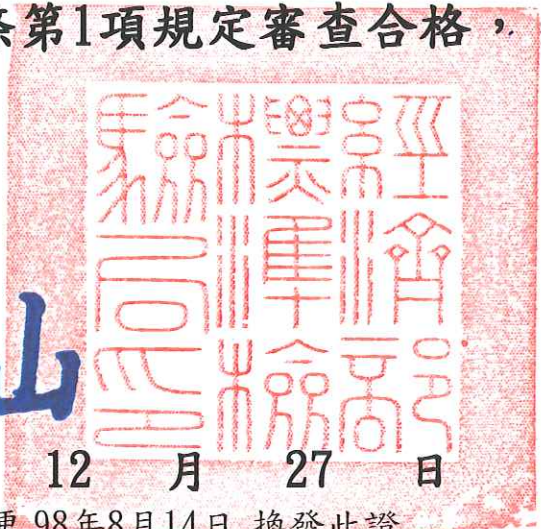 條第1項規定審查合格，
經濟部標準檢驗局印
山
12 月 27 日
更 98年8月14日 換發此證